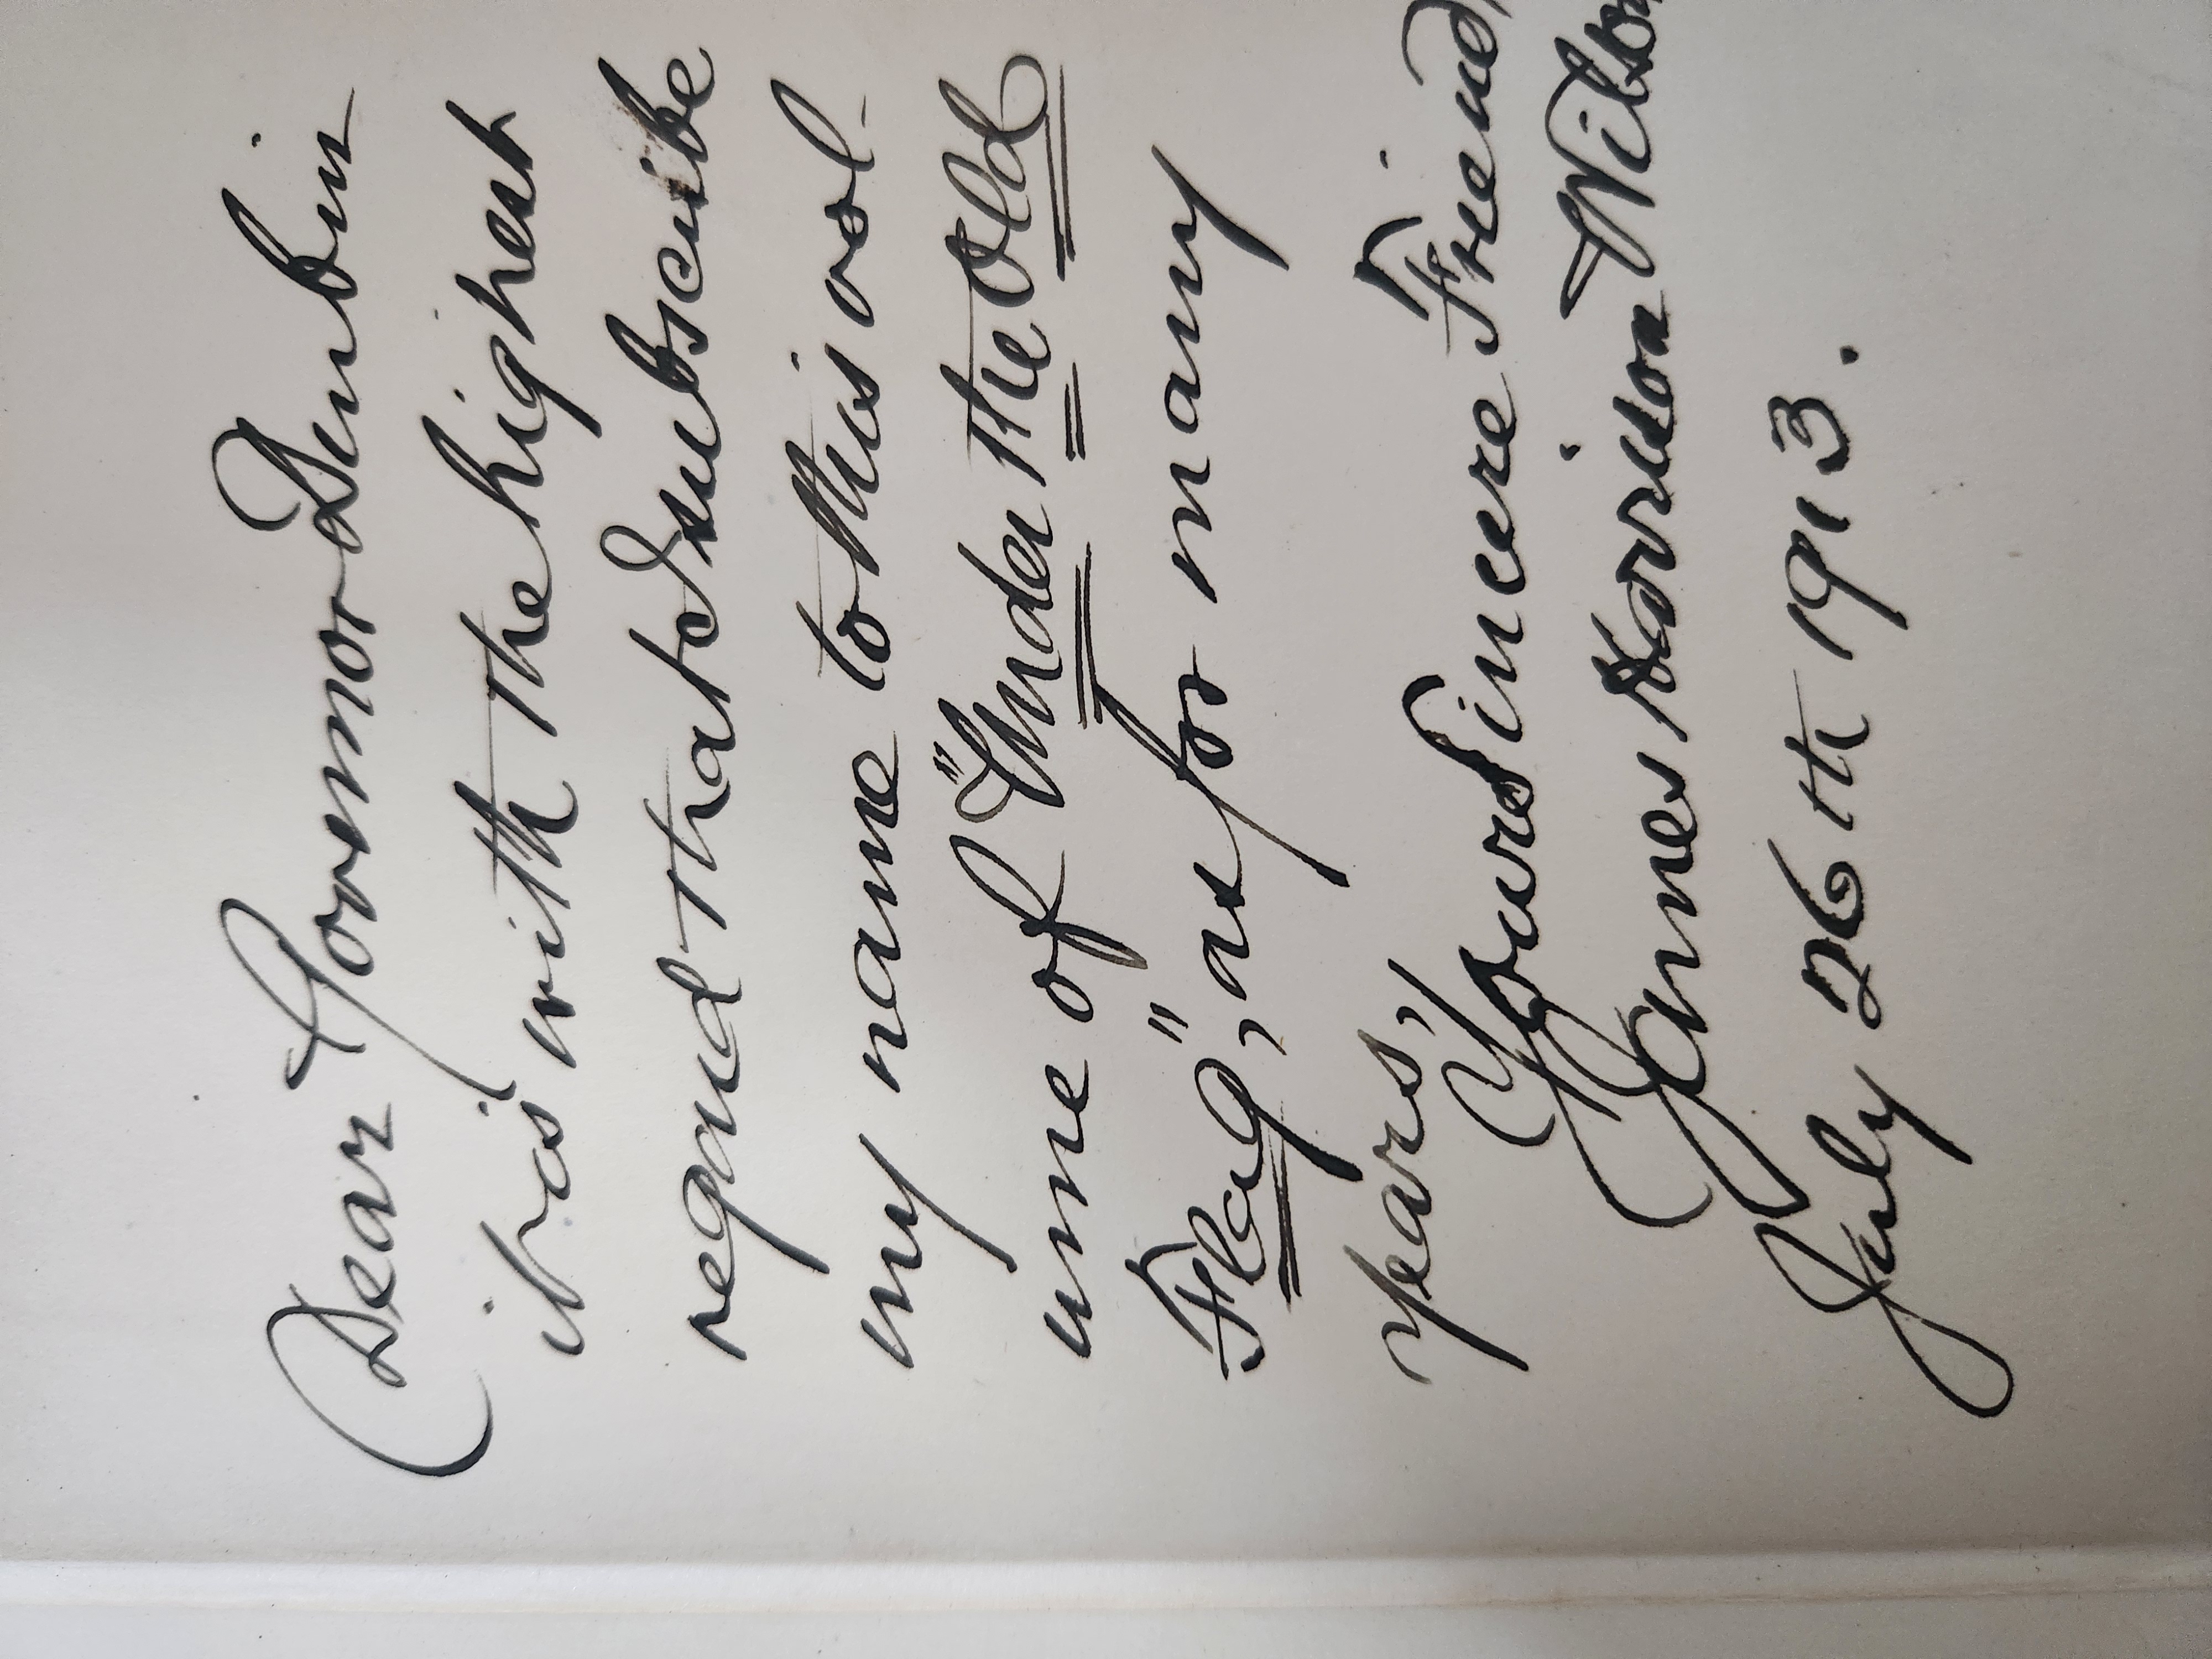 Dear Governor Durbin
it is with the highest
regard that I subscribe
my name to this vol-
ume of "Under the Old
Flag," as for many
years,
Yours Sincere Friend,
James Harrison Wilson
July 26th 1913.